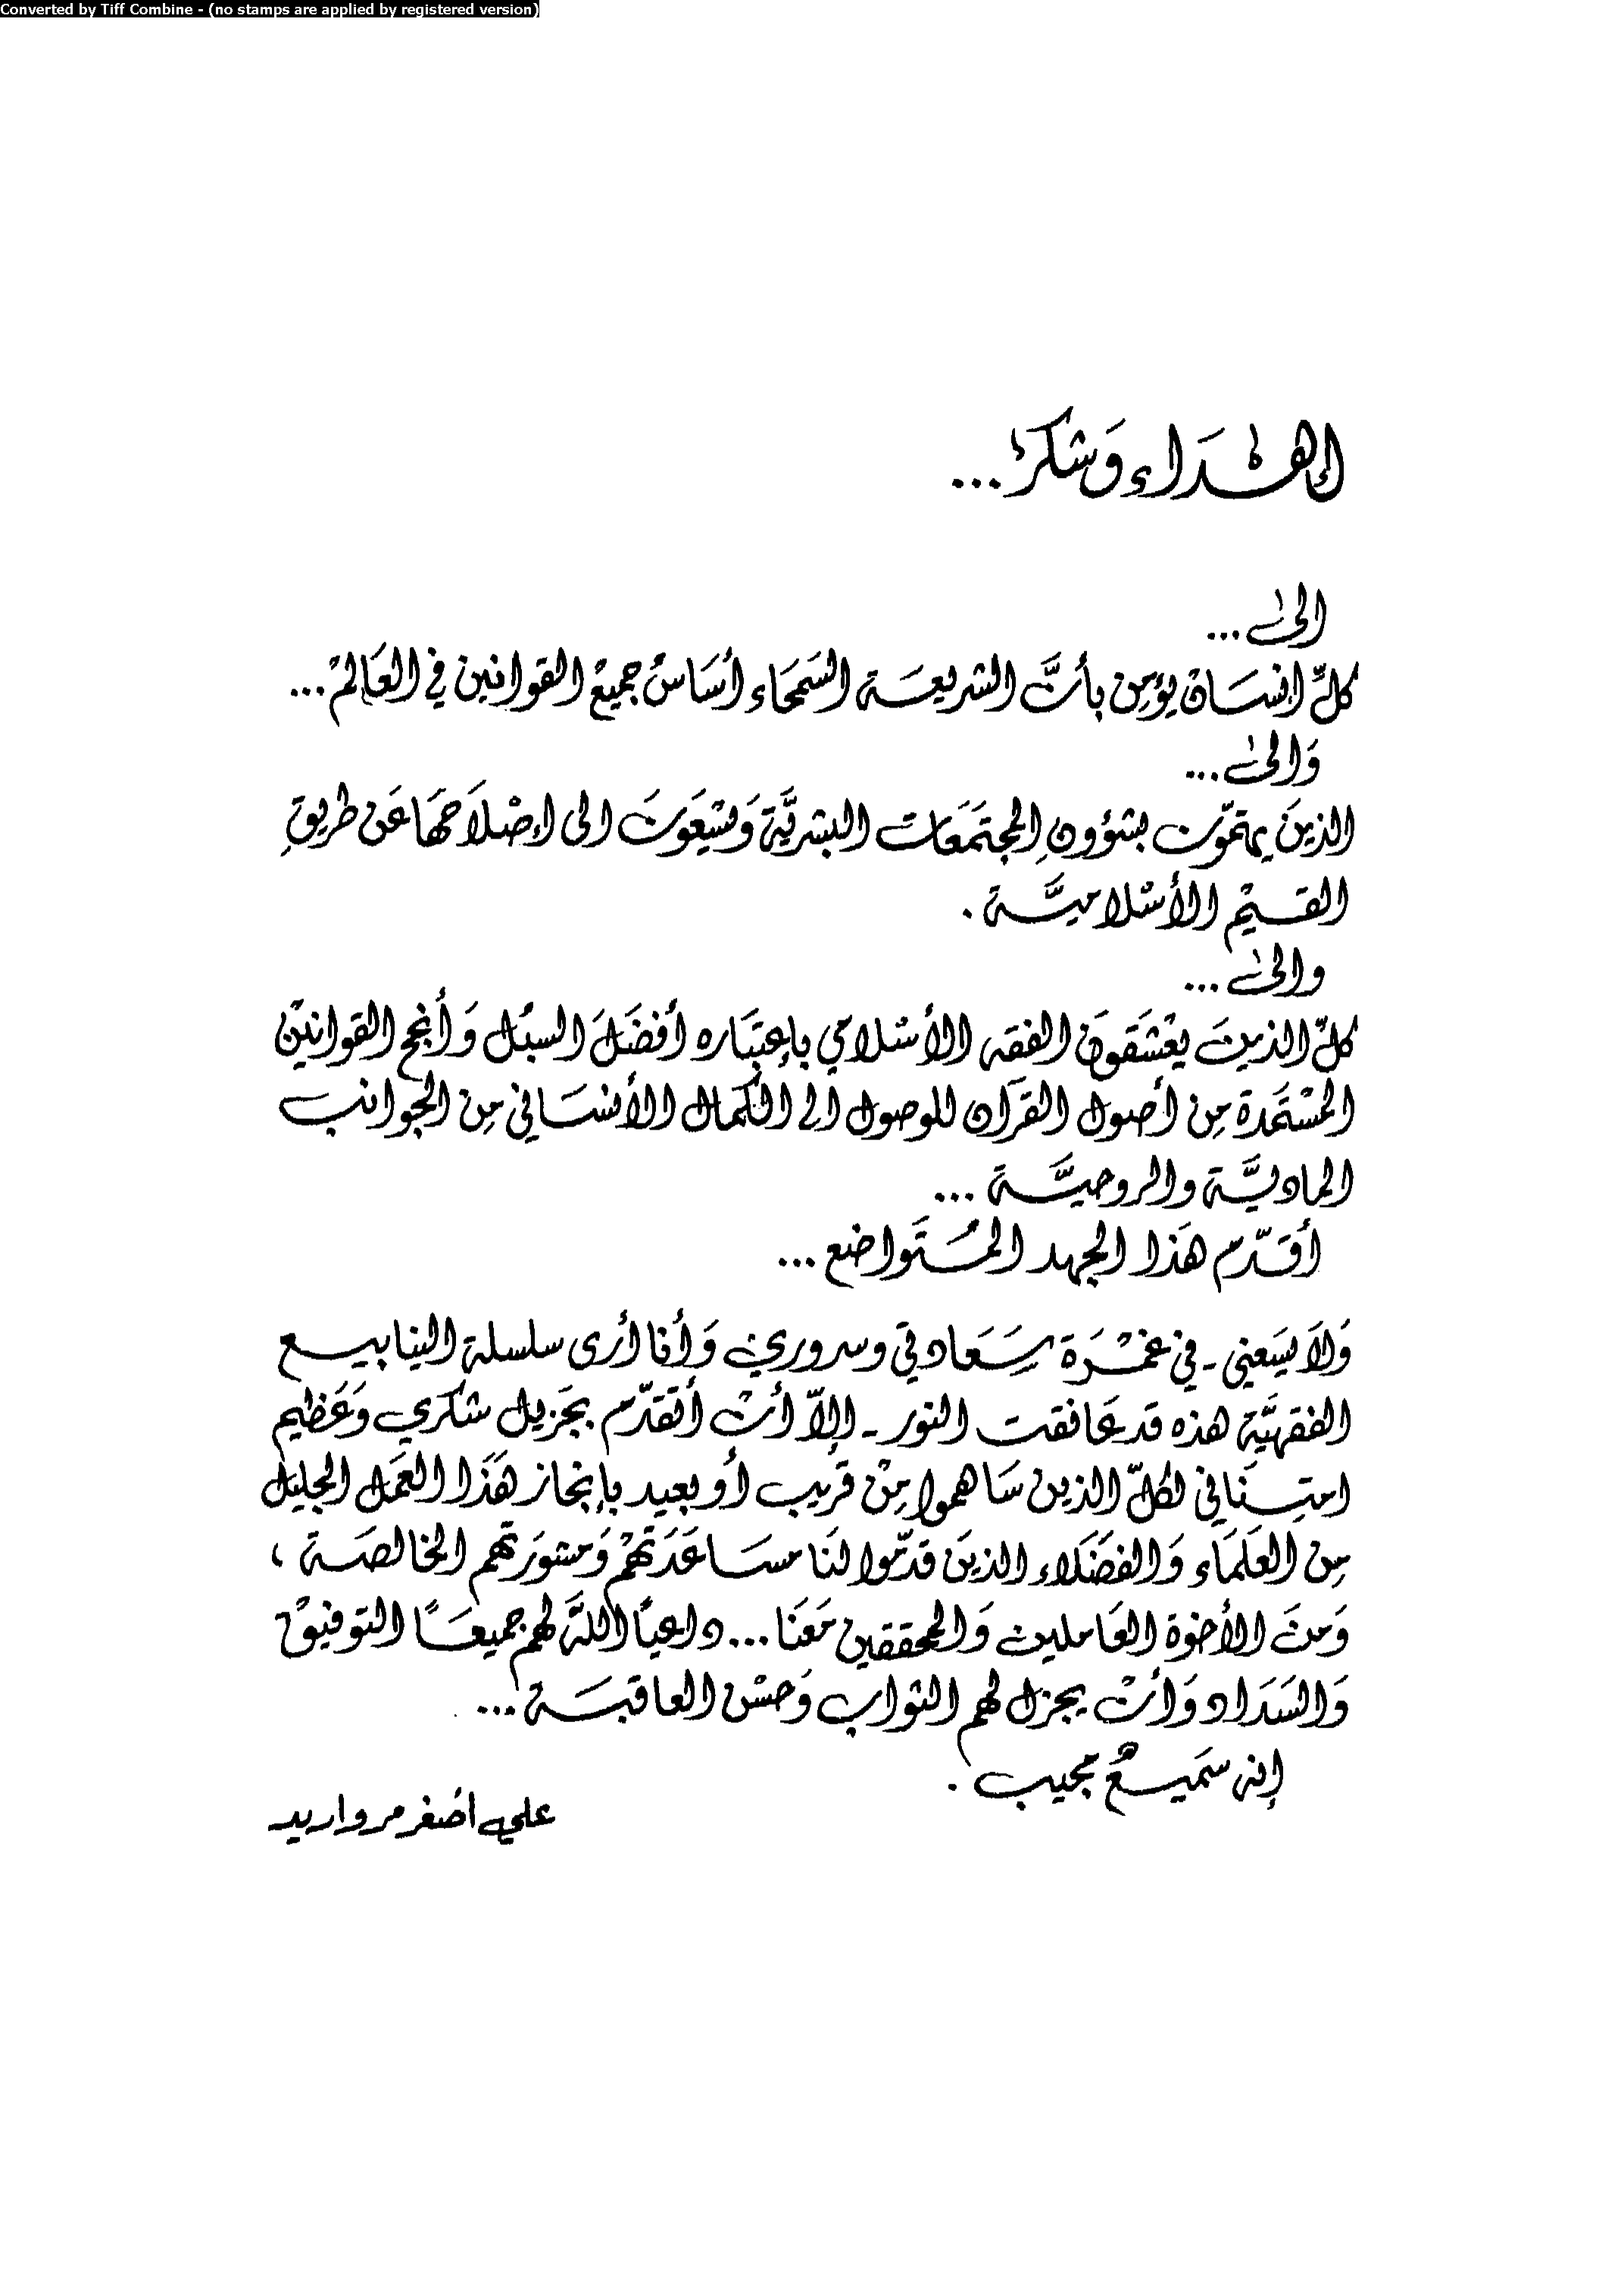 Converted by Tiff Combine - (no stamps are applied by registered version)
إهْدَاء وَشكرْ ...
الىٰ ...
كلِّ انسَان يؤمِن بأنَّ الشريعَة السَمحَاء أسَاسُ جميعْ القوانين في العَالمْ ...
وَالىٰ ...
الذينَ يهتمّون بشؤونِ المجتَمَعات البشريَّة وَيسْعَونَ الى اصْلاَحهَا عَن طريقِ
القيمْ الأسْلاميَّة .
والىٰ ...
كلّ الذينَ يعْشَقونَ الفقه الأسْلامي بإعتبَاره أفضَلَ السبُل وَأنجح القوانينْ
المسْتمَدة مِن أصول القرَآن للوصول الى الكمال الأنسَاني مِن الجوانب
الماديَّة والروحيَّة ...
أقدّم هَذا الجهد المُتَواضع ...
وَلاَ يسَعني - في غمْرَة سَعَادتي وسروري وَأنا أرى سلسلة الينابيع
الفقهيَّة هذه قد عَانقت النور - إلاّ أنْ أتقدّم بجَزيل شكري وَعَظيم
امتِنَاني لكلّ الذين سَاهموا مِنْ قريب أو بعيد بإنجاز هَذَا العَمل الجليل
مِن العلمَاء وَالفضَلاء الذينَ قدّموا لنَا مسَاعَدَتهمْ وَمشورَتهم الخالصَة ،
وَمنَ الأخوَة العَاملين وَالمحققين مَعَنا ... داعيًا اللهَ لهم جميعًا التوفيقْ
وَالسَدَاد وَأنْ يجزل لهم الثواب وَحسْن العاقبَة ...
إنه سَميعٌ مجيب .
علي اصْغر مرواريد